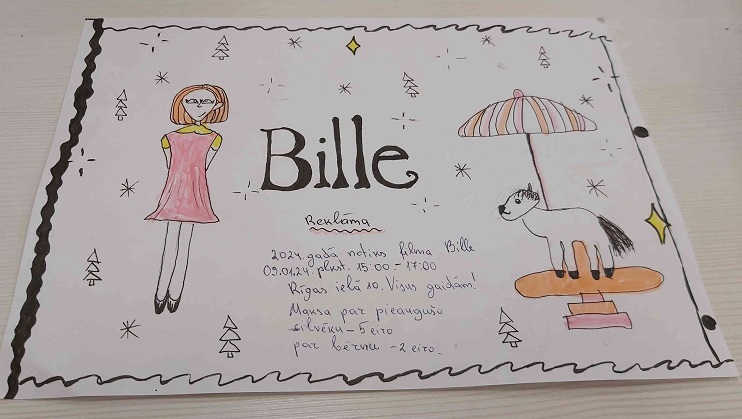 Bille
Reklāma
2024. gadā notiks filma Bille
09.01.24. plkst. 15:00 - 17:00
Rīgas ielā 10. Visus gaidām!
Maksa par pieaugušo
cilvēku - 5 eiro
par bērnu - 2 eiro.